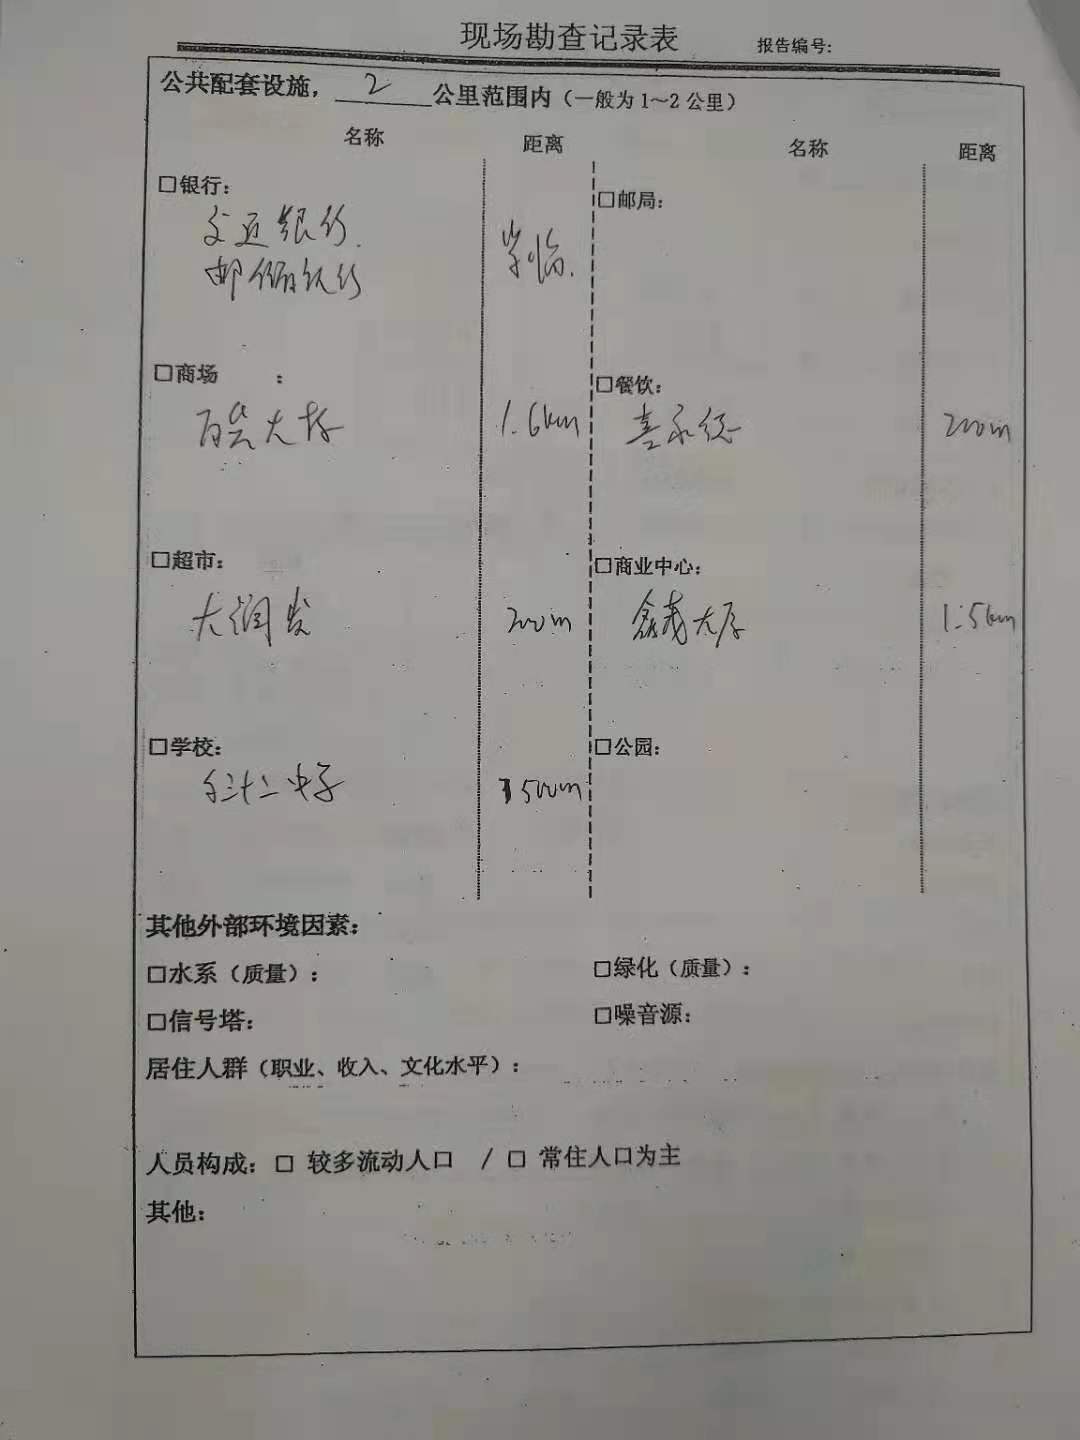 现场勘查记录表
报告编号:
公共配套设施，2公里范围内（一般为1～2公里）
名称 距离 名称 距离
□银行：
□邮局：
交通银行
邮储银行
紧临
□商场 ：
□餐饮：
百货大楼 1.6km
喜永德 200m
□超市：
□商业中心：
大润发 200m
鑫茂大厦 1.5km
□学校：
□公园：
三十二中学 1500m
其他外部环境因素：
□水系（质量）： □绿化（质量）：
□信号塔： □噪音源：
居住人群（职业、收入、文化水平）：
人员构成：□ 较多流动人口 / □ 常住人口为主
其他：